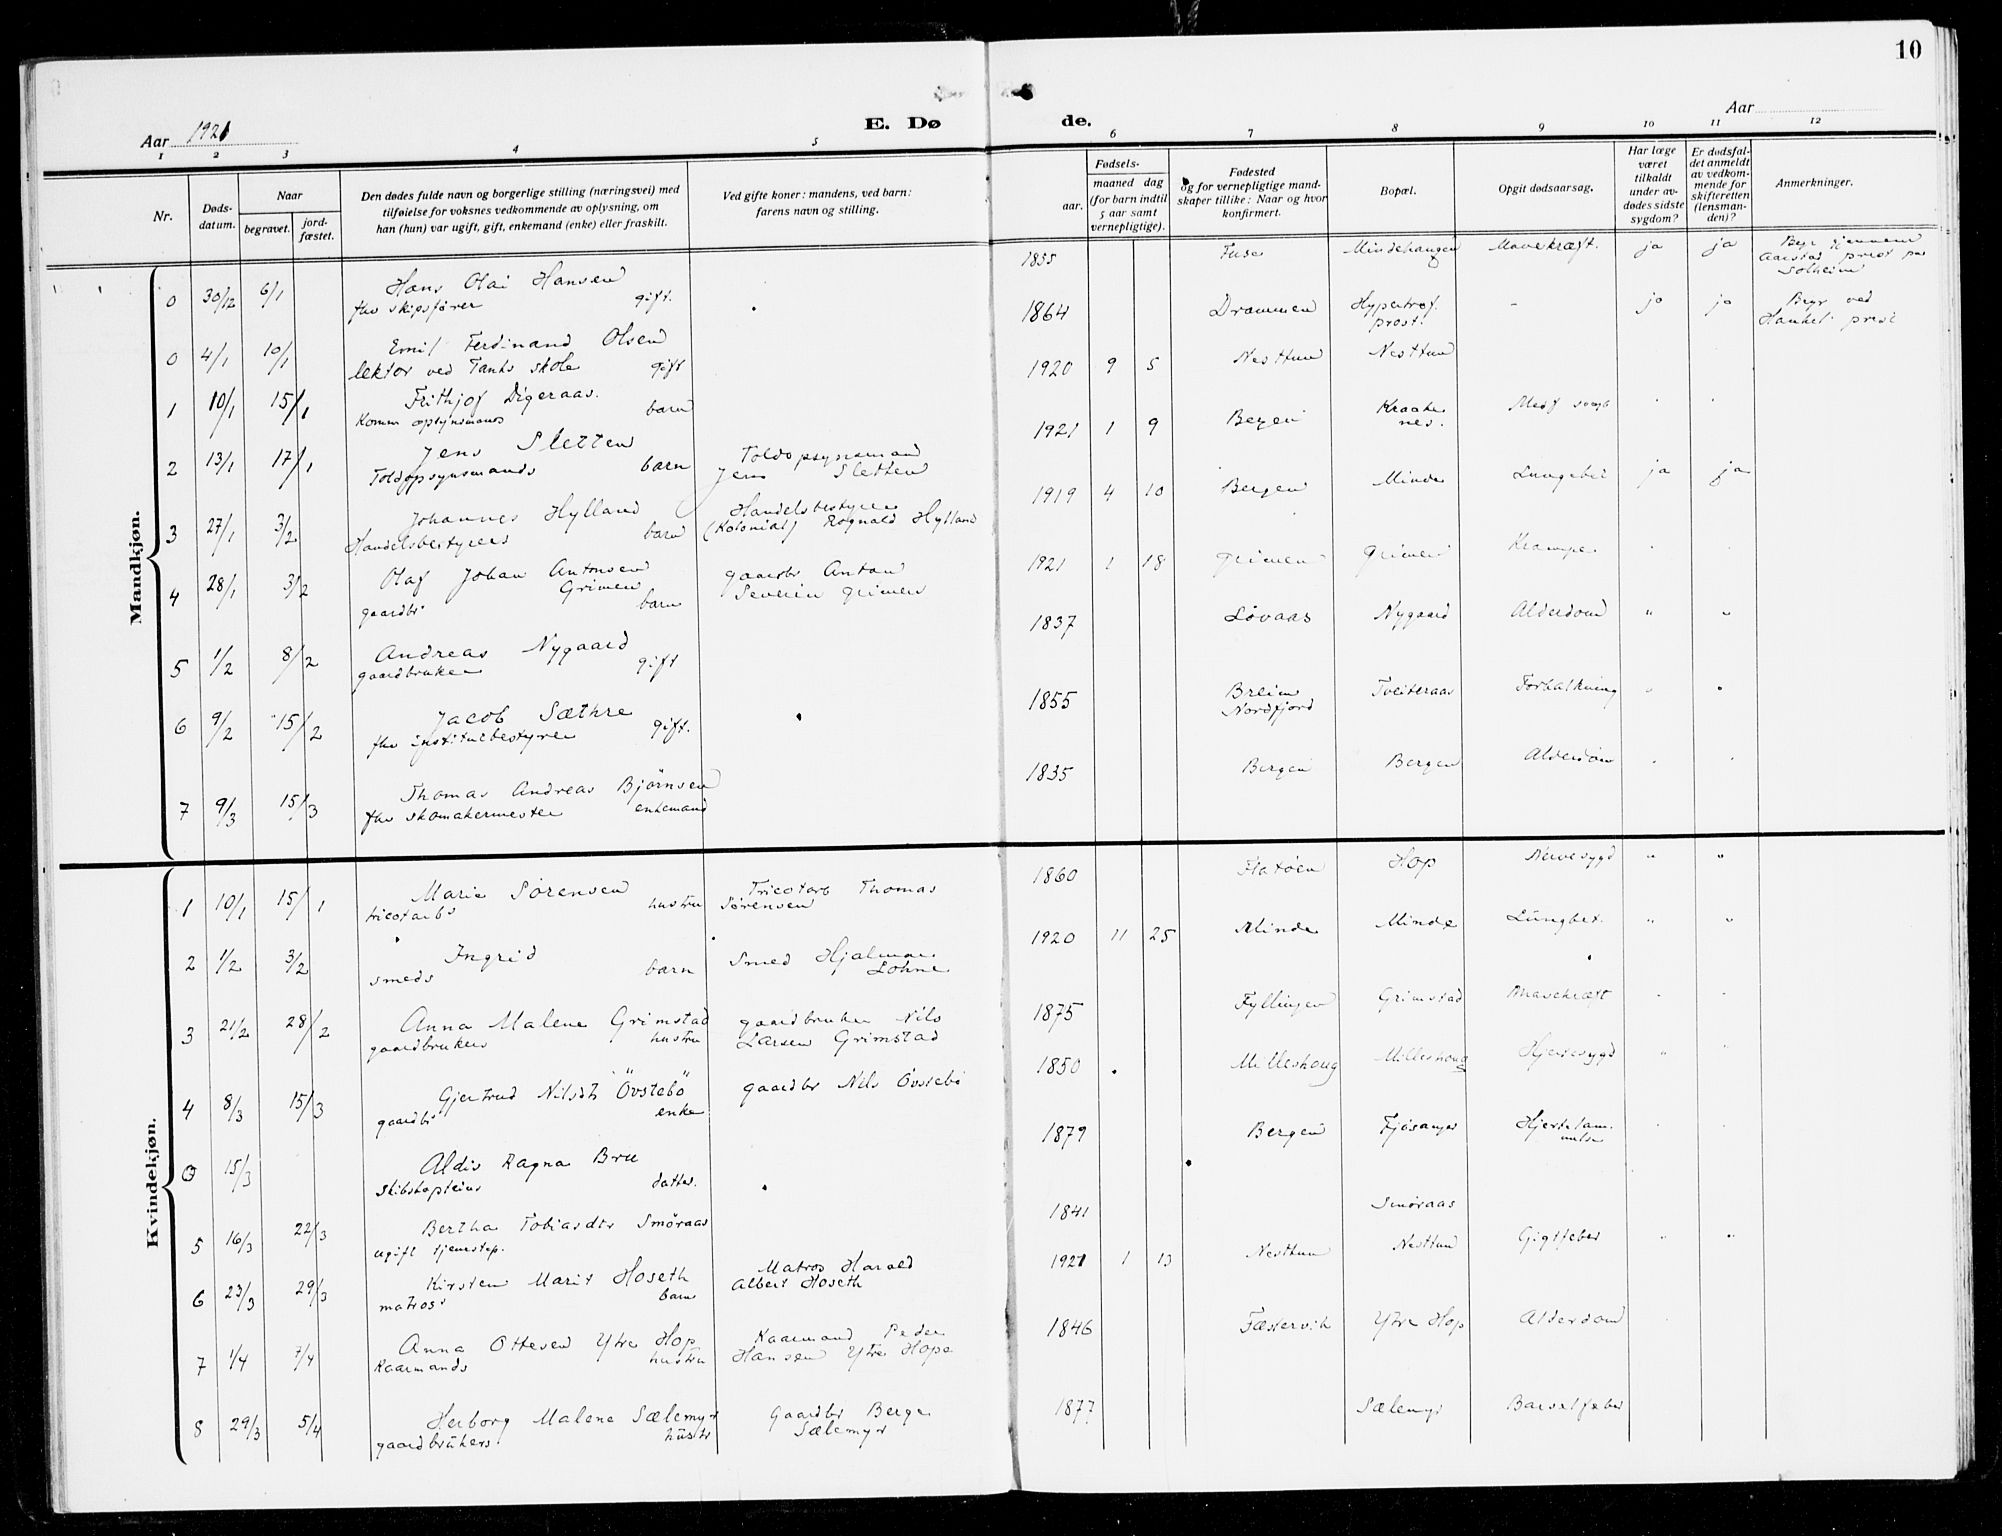 10
Aar 1921
E. Dø
de.
Aar
1 2 3 4 5 6 7 8 9 10 11 12
Nr.
Døds-
datum.
Naar
begravet.
jord-
fæstet.
Den dødes fulde navn og borgerlige stilling (næringsvei) med
tilføielse for voksnes vedkommende av oplysning, om
han (hun) var ugift, gift, enkemand (enke) eller fraskilt.
Ved gifte koner: mandens, ved barn:
farens navn og stilling.
Fødsels-
aar.
maaned dag
(for barn indtil
5 aar samt
vernepligtige).
Fødested
og for vernepligtige mand-
skaper tillike: Naar og hvor
konfirmert.
Bopæl.
Opgit dødsaarsag.
Har læge
været
tilkaldt
under av-
dødes sidste
sygdom?
Er dødsfal-
det anmeldt
av vedkom-
mende for
skifteretten
(lensman-
den)?
Anmerkninger.
Mandkjøn.
0 30/12 6/1 Hans Olai Hansen
fhv skipsfører gift.
1855 Fuse Mindehaugen Mavekræft. ja ja Begr gjennem
Aarstad prest paa
Solheim
0 4/1 10/1 Emil Ferdinand Olsen
lektor ved Tanks skole gift
1864 Drammen Hypertrof. - ja ja Begr ved
prost. Haukel. prest
1 10/1 15/1 Frithjof Digeraas.
Komm opsynsmans barn
1920 9 5 Nesttun Nesttun
2 13/1 17/1 Jens Sletten Toldopsynsmand
Toldopsynsmands barn Jens Sletten
1921 1 9 Bergen Kraake Medf svagh
nes.
3 27/1 3/2 Johannes Hylland Handelsbestyrer
Handelsbestyrers barn (Kolonial) Rognald Hylland
1919 4 10 Bergen Minde Lungebet ja ja
4 28/1 3/2 Olaf Johan Antonsen gaardbr Anton
Grimen Severin Grimen
gaardbr barn
1921 1 18 Grimen Grimen Krampe
5 1/2 8/2 Andreas Nygaard
gaardbruker gift
1837 Løvaas Nygaard Alderdom " "
6 9/2 15/2 Jacob Sæthre
fhv institutbestyrer gift.
1855 Breim Tveiteraas Forkalkning " "
Nordfjord
7 9/3 15/3 Thomas Andreas Bjørnsen
fhv skomakermester enkemand
1835 Bergen Bergen Alderdom
Kvindekjøn.
1 10/1 15/1 Marie Sørensen Tricotarb Thomas
tricotarbs hustru Sørensen
1860 Flatøen Hop Nervesygd " "
2 1/2 3/2 Ingrid Smed Hjalmar
smeds barn Lohne
1920 11 25 Minde Minde Lungbet. " "
3 21/2 28/2 Anna Malene Grimstad gaardbruker Nils
gaardbrukers hustru Larsen Grimstad
1875 Fyllingen Grimstad Mavekræft
4 8/3 15/3 Gjertrud Nilsdt Övstebö gaardbr Nils Övstebö
gaardbs enke
1850 Milleshaug Milleshaug Hjertesygd " "
0 15/3 Aldis Ragna Bru
Skibskapteins datter.
1879 Bergen Fjösanger Hjertelam-
melse
5 16/3 22/3 Bertha Tobiasdtr Smöraas
ugift tjenestep.
1841 Smöraas
6 23/3 29/3 Kirsten Marit Hoseth Matros Harald
matross barn Albert Hoseth
1921 1 13 Nesttun Nesttun Gigtfeber " "
7 1/4 7/4 Anna Ottesen Ytre Hop Kaarmand Peder
Kaarmands hustru Hansen Ytre Hope
1846 Fæstervik Ytre Hop Alderdom
8 29/3 5/4 Herborg Malene Sælemyr Gaardbr Berge
gaardbrukers hustr Sælemyr
1877 Sælemyr Barselfeber